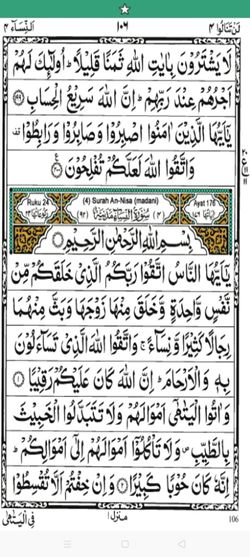 لَنْ تَنَالُوا ٤ ١٠٦ اَلنِّسَآء ٤
لَا يَشْتَرُوْنَ بِاٰيٰتِ اللّٰهِ ثَمَنًا قَلِيْلًا ؕ اُولٰٓئِكَ لَهُمْ
اَجْرُهُمْ عِنْدَ رَبِّهِمْ ؕ اِنَّ اللّٰهَ سَرِيْعُ الْحِسَابِ ﴿۱۹۹﴾
يٰٓاَيُّهَا الَّذِيْنَ اٰمَنُوا اصْبِرُوْا وَصَابِرُوْا وَرَابِطُوْا
وَاتَّقُوا اللّٰهَ لَعَلَّكُمْ تُفْلِحُوْنَ ﴿۲۰۰﴾
Ruku 24 (4) Surah An-Nisa (madani) Ayat 176
بِسْمِ اللّٰهِ الرَّحْمٰنِ الرَّحِيْمِ
يٰٓاَيُّهَا النَّاسُ اتَّقُوْا رَبَّكُمُ الَّذِيْ خَلَقَكُمْ مِّنْ
نَّفْسٍ وَّاحِدَةٍ وَّخَلَقَ مِنْهَا زَوْجَهَا وَبَثَّ مِنْهُمَا
رِجَالًا كَثِيْرًا وَّنِسَآءً ۚ وَاتَّقُوا اللّٰهَ الَّذِيْ تَسَآءَلُوْنَ
بِهٖ وَالْاَرْحَامَ ؕ اِنَّ اللّٰهَ كَانَ عَلَيْكُمْ رَقِيْبًا ﴿۱﴾
وَاٰتُوا الْيَتٰمٰٓى اَمْوَالَهُمْ وَلَا تَتَبَدَّلُوا الْخَبِيْثَ
بِالطَّيِّبِ ۪ وَلَا تَاْكُلُوْٓا اَمْوَالَهُمْ اِلٰٓى اَمْوَالِكُمْ ؕ
اِنَّهٗ كَانَ حُوْبًا كَبِيْرًا ﴿۲﴾ وَاِنْ خِفْتُمْ اَلَّا تُقْسِطُوْا
فِي الْيَتٰمٰى منزل ١ 106